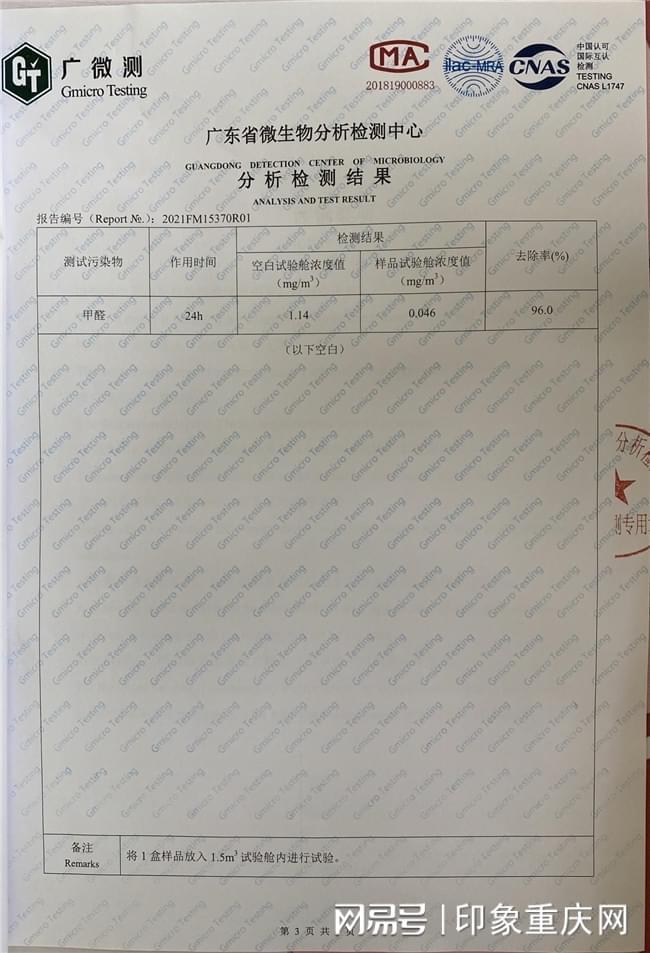 GT
广微测
Gmicro Testing
MA
201819000883
ilac-MRA
CNAS
中国认可
国际互认
检测
TESTING
CNAS L1747
广东省微生物分析检测中心
GUANGDONG DETECTION CENTER OF MICROBIOLOGY
分析检测结果
ANALYSIS AND TEST RESULT
报告编号（Report №.）：2021FM15370R01
测试污染物 作用时间 检测结果 去除率(%)
空白试验舱浓度值（mg/m³） 样品试验舱浓度值（mg/m³）
甲醛 24h 1.14 0.046 96.0
（以下空白）
分析检
测专用
备注
Remarks
将 1 盒样品放入 1.5m³ 试验舱内进行试验。
第 3 页 共 页
网易号 | 印象重庆网